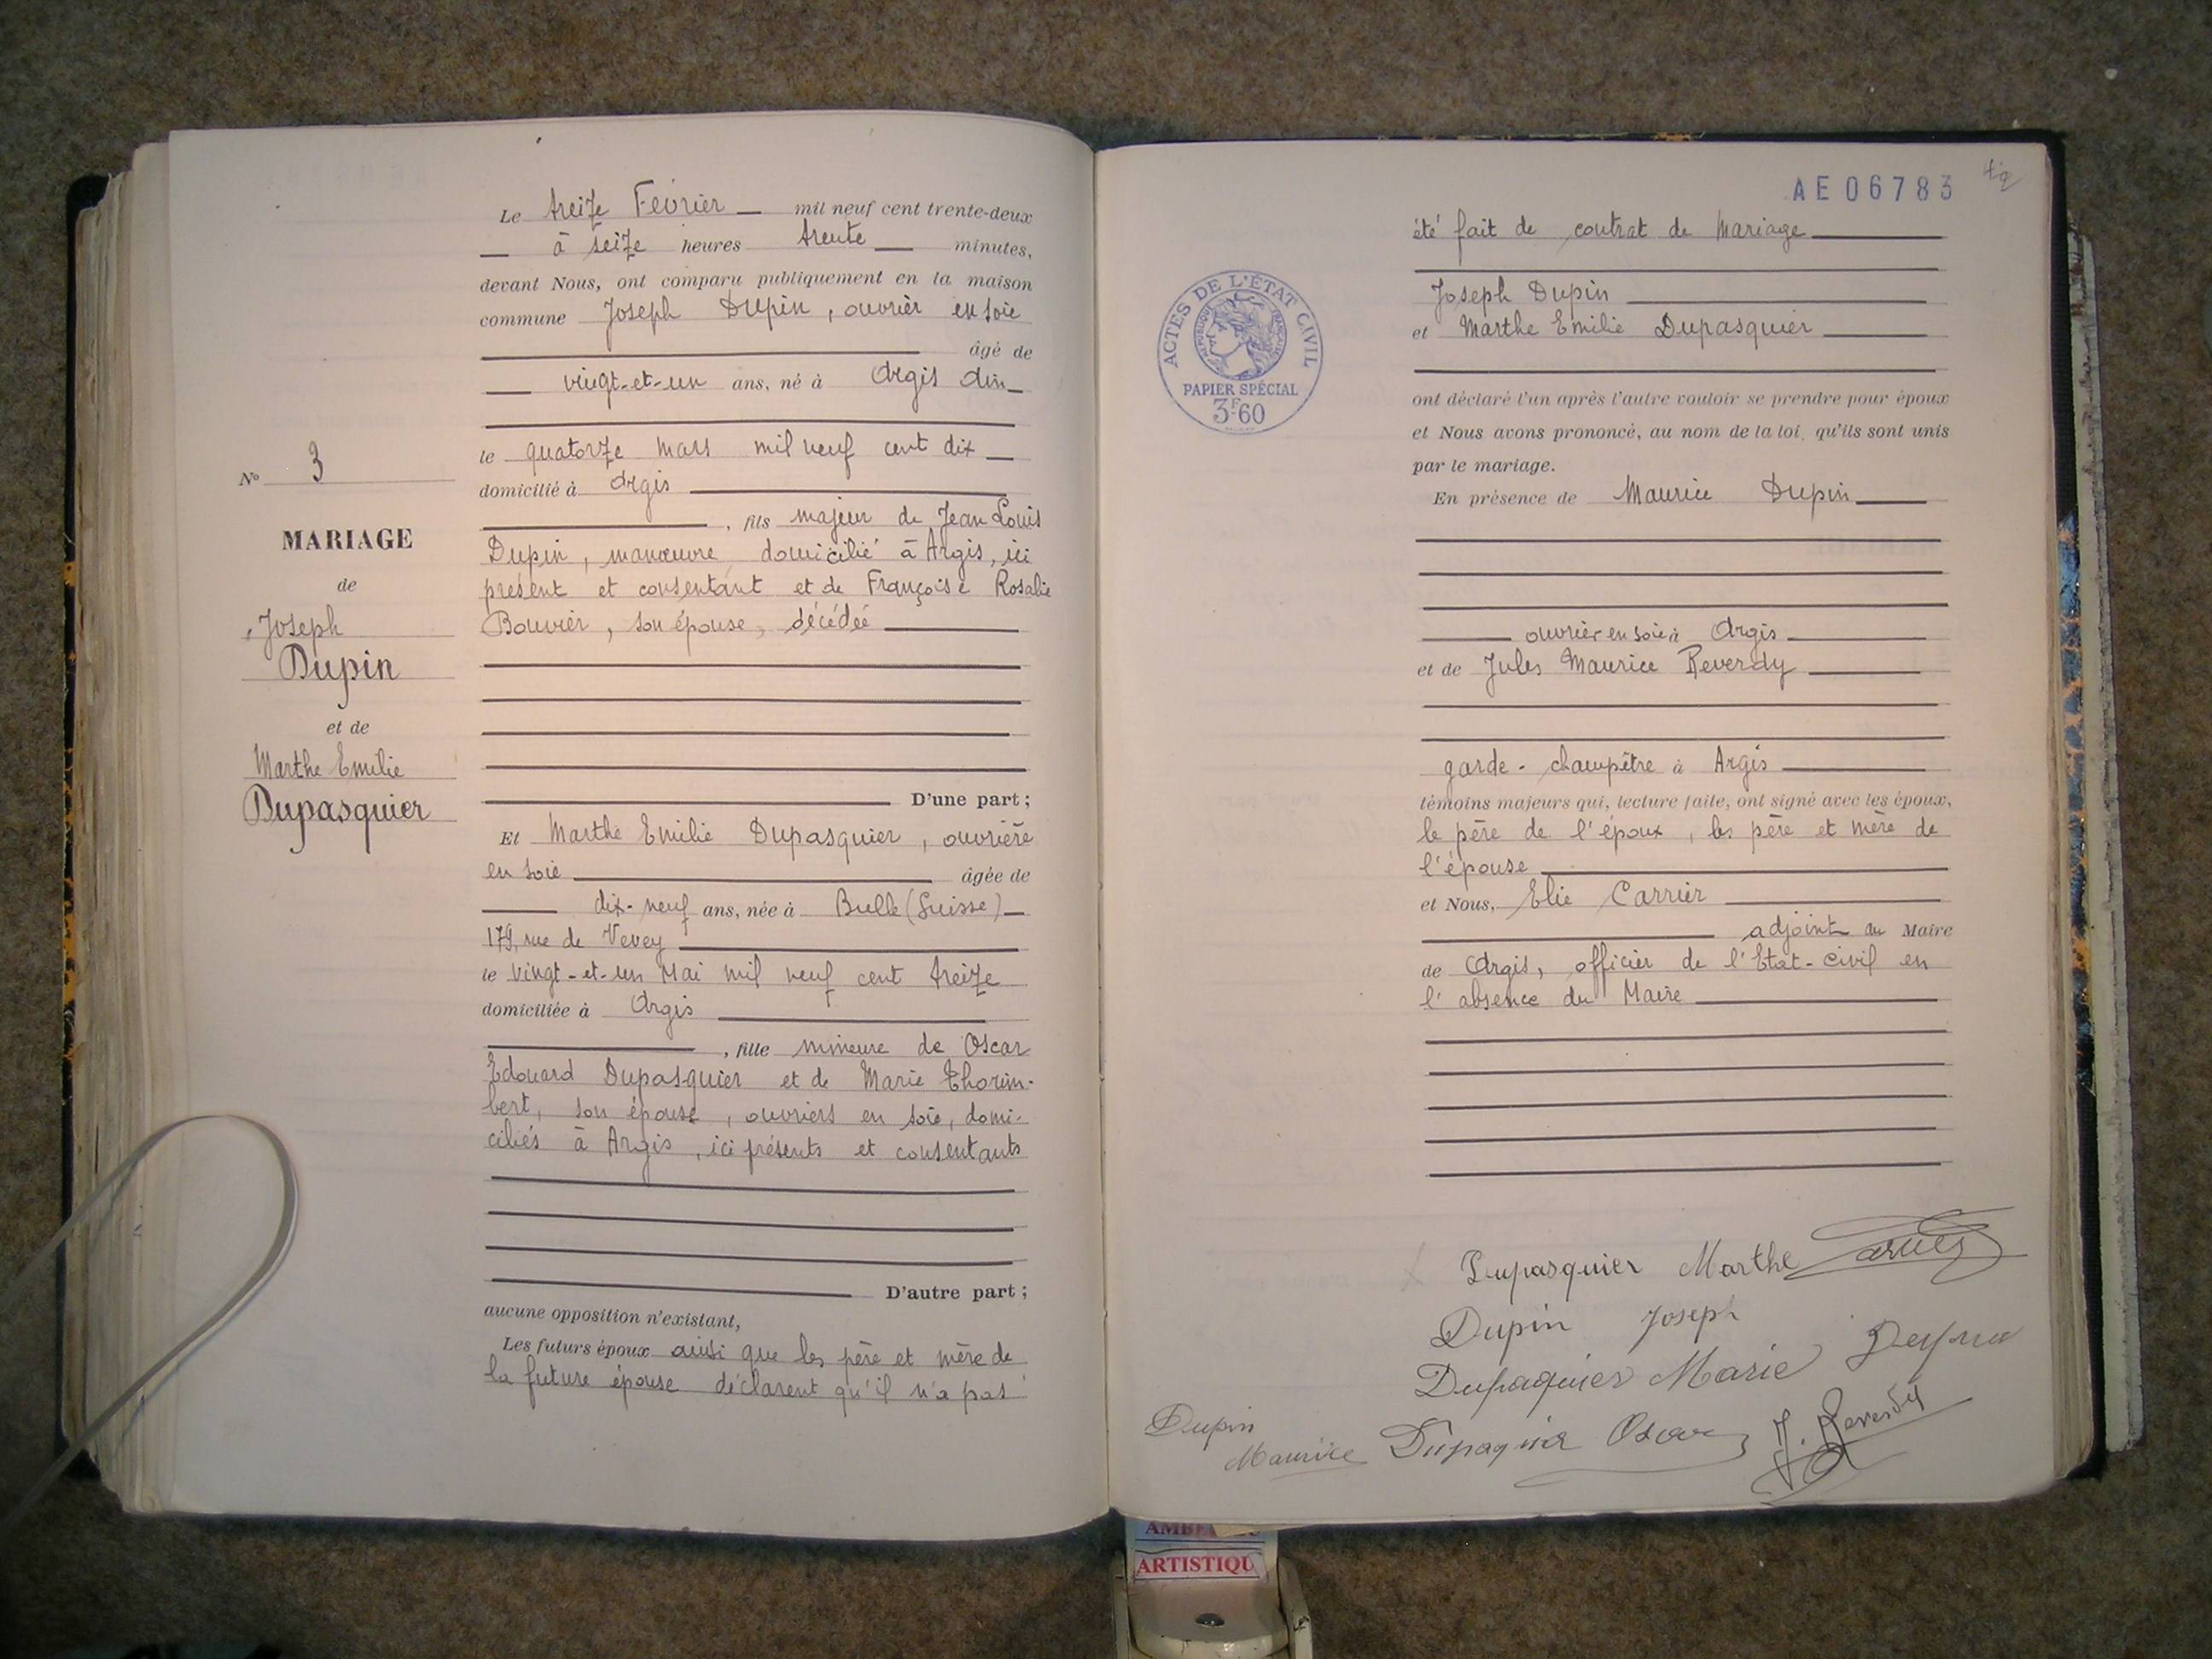 Le treize Février mil neuf cent trente-deux
à seize heures trente minutes,
devant Nous, ont comparu publiquement en la maison
commune Joseph Dupin, ouvrier en soie
âgé de
vingt-et-un ans, né à Argis Ain
le quatorze mars mil neuf cent dix
domicilié à Argis
, fils majeur de Jean Louis
Dupin, manœuvre domicilié à Argis, ici
présent et consentant et de Françoise Rosalie
Bouvier, son épouse, décédée
D'une part ;
Et Marthe Emilie Dupasquier, ouvrière
en soie âgée de
dix-neuf ans, née à Bulle (Suisse)
179, rue de Vevey
le vingt-et-un Mai mil neuf cent treize
domiciliée à Argis
, fille mineure de Oscar
Edouard Dupasquier et de Marie Thorim-
bert, son épouse, ouvriers en soie, domi-
ciliés à Argis, ici présents et consentants
D'autre part ;
aucune opposition n'existant,
Les futurs époux ainsi que les père et mère de
la future épouse déclarent qu'il n'a pas
No 3
MARIAGE
de
Joseph
Dupin
et de
Marthe Emilie
Dupasquier
AE06783
été fait de contrat de Mariage
Joseph Dupin
et Marthe Emilie Dupasquier
ont déclaré l'un après l'autre vouloir se prendre pour époux
et Nous avons prononcé, au nom de la loi, qu'ils sont unis
par le mariage.
En présence de Maurice Dupin
ouvrier en soie à Argis
et de Jules Maurice Reverdy
garde-champêtre à Argis
témoins majeurs qui, lecture faite, ont signé avec les époux,
le père de l'époux, les père et mère de
l'épouse
et Nous, Elie Carrier
adjoint au Maire
de Argis, officier de l'Etat-civil en
l'absence du Maire
ACTES DE L'ÉTAT CIVIL
RÉPUBLIQUE FRANÇAISE
PAPIER SPÉCIAL
3F60
Dupasquier Marthe
Dupin Joseph
Dupaquier Marie
Dupin
Maurice
Dupaquier Oscar
J. Reverdy
ARTISTIQU